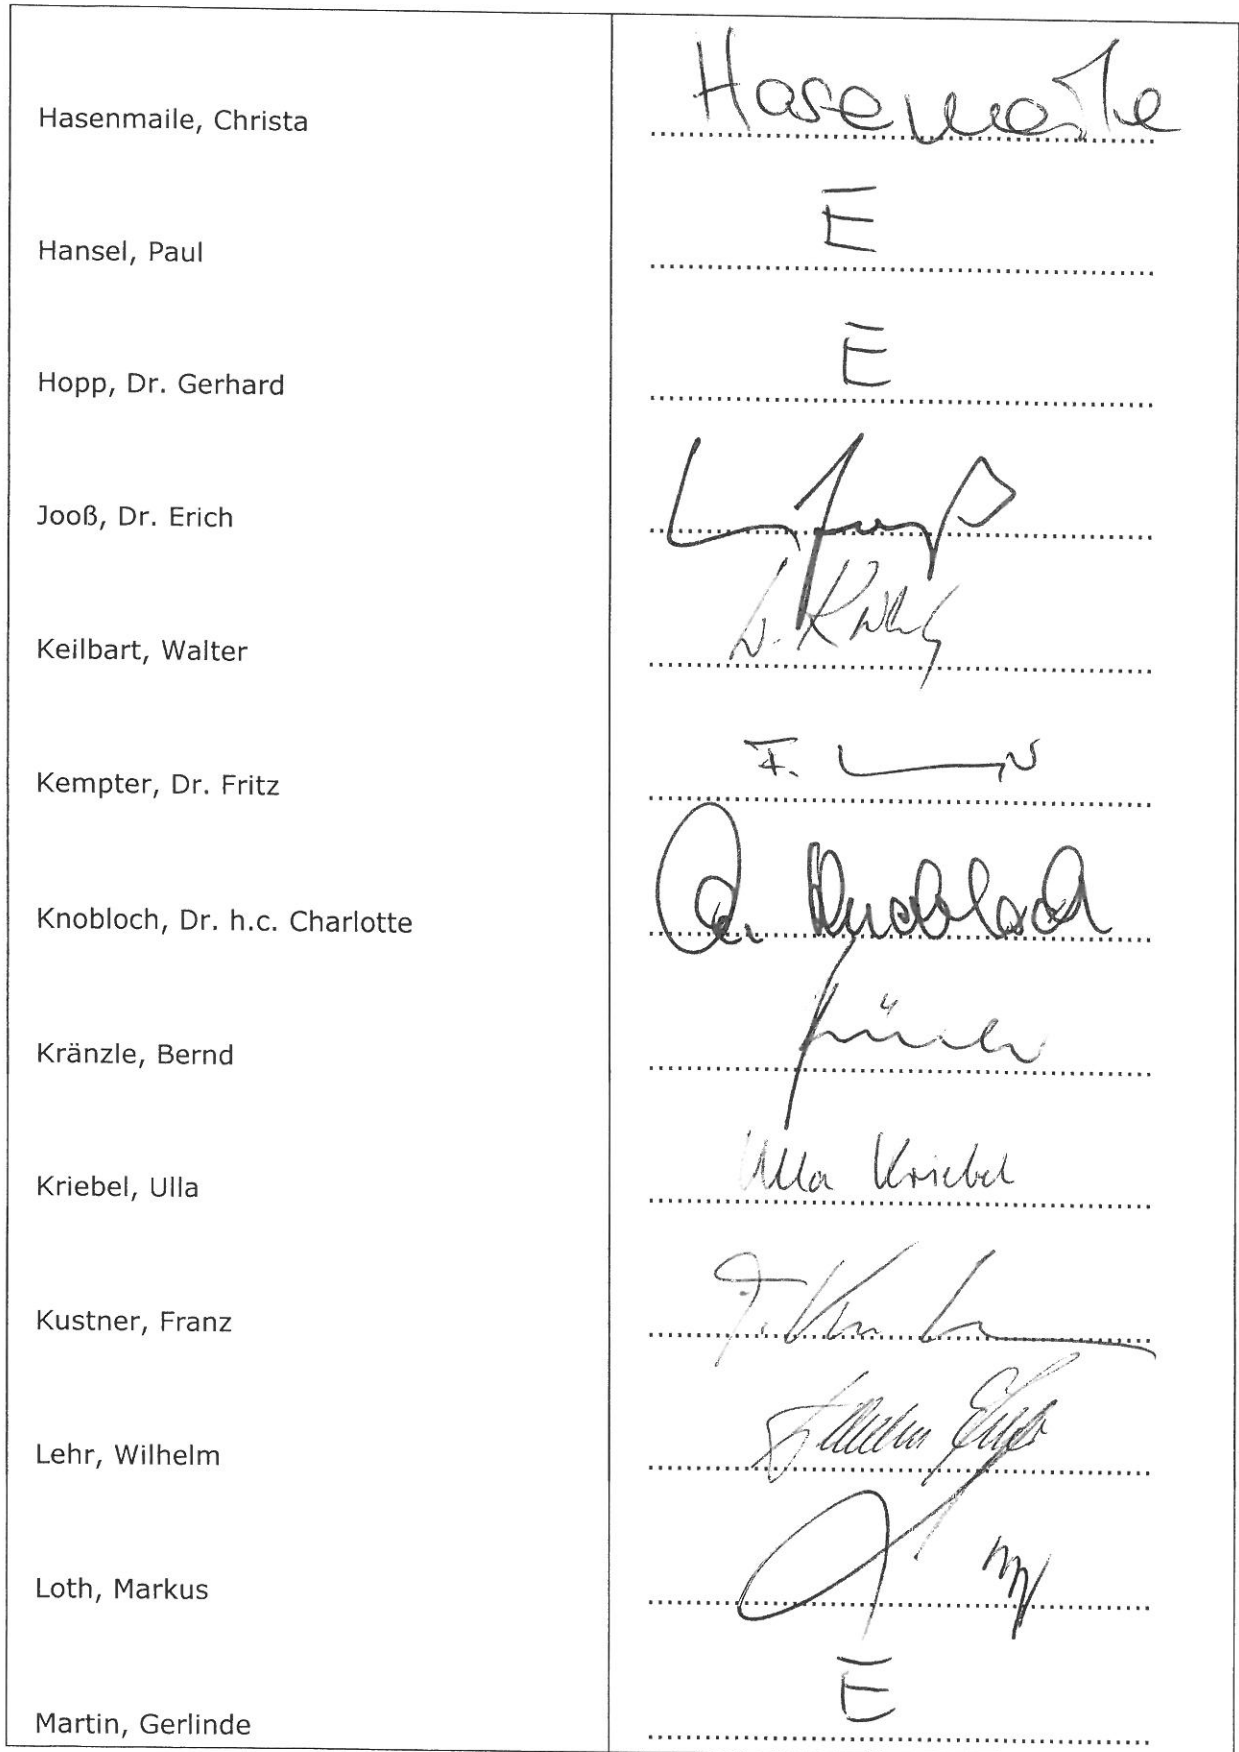 Hasenmaile, Christa Hasemaile
Hansel, Paul E
Hopp, Dr. Gerhard E
Jooß, Dr. Erich
Keilbart, Walter
Kempter, Dr. Fritz F.
Knobloch, Dr. h.c. Charlotte Ch. Knobloch
Kränzle, Bernd
Kriebel, Ulla Ulla Kriebel
Kustner, Franz
Lehr, Wilhelm
Loth, Markus
Martin, Gerlinde E